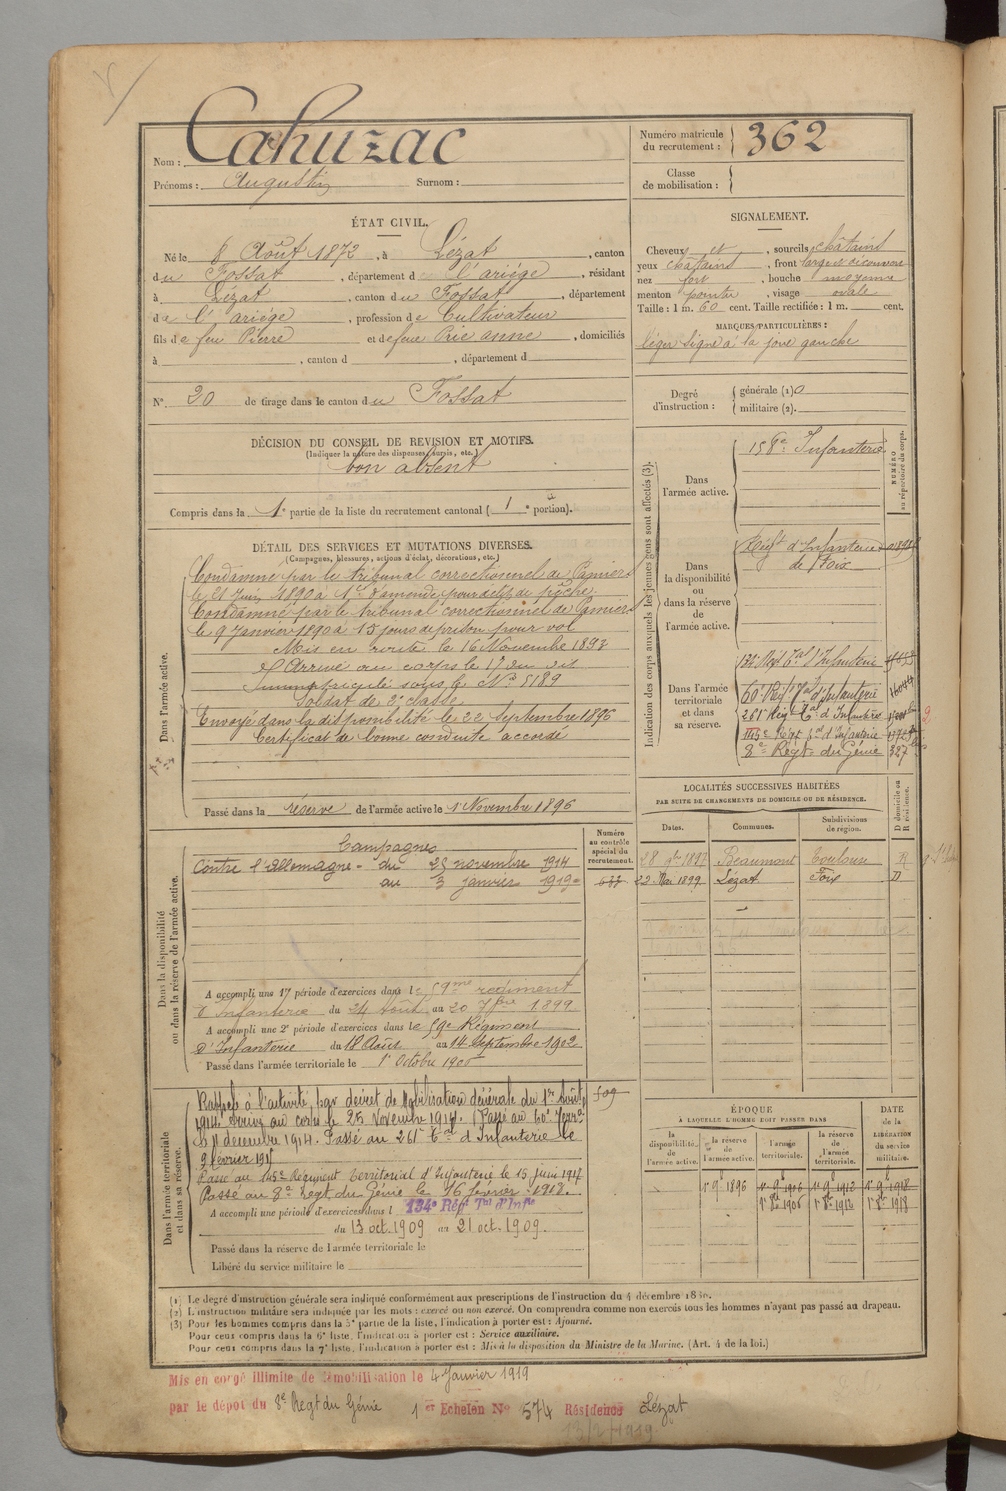 Nom : Cahuzac
Prénoms : Augustin Surnom :
Numéro matricule du recrutement : 362
Classe de mobilisation :
ÉTAT CIVIL.
Né le 8 Août 1872, à Lézat, canton
du Fossat, département de l'ariège, résidant
à Lézat, canton du Fossat, département
de l'ariège, profession de Cultivateur
fils de feu Pierre et de feue Prie anne, domiciliés
à , canton d , département d
N° 20 de tirage dans le canton du Fossat
SIGNALEMENT.
Cheveux et , sourcils châtains
yeux châtains, front large et découvert
nez fort, bouche moyenne
menton pointu, visage ovale
Taille : 1 m. 60 cent. Taille rectifiée : 1 m. cent.
MARQUES PARTICULIÈRES :
léger signe à la joue gauche
Degré d'instruction : générale (1) 0
militaire (2).
DÉCISION DU CONSEIL DE REVISION ET MOTIFS.
(Indiquer la nature des dispenses, sursis, etc.)
bon absent
Compris dans la 1e partie de la liste du recrutement cantonal ( 1e portion).
DÉTAIL DES SERVICES ET MUTATIONS DIVERSES.
(Campagnes, blessures, actions d'éclat, décorations, etc.)
Dans l'armée active.
Condamné par le tribunal correctionnel de Pamiers
le 21 Juin 1890 à d'amende pour délit de pêche.
Condamné par le tribunal correctionnel de Pamiers
le 9 Janvier 1890 à 15 jours de prison pour vol
Mis en route le 16 Novembre 1893
Arrivé au corps le 17 du dit
Immatriculé sous le N° 5189
Soldat de 2e classe
Envoyé dans la disponibilité le 22 Septembre 1896
Certificat de bonne conduite accordé
Passé dans la réserve de l'armée active le 1 Novembre 1896
Indication des corps auxquels les jeunes gens sont affectés (3).
NUMÉRO au répertoire du corps.
Dans l'armée active.
158e Infanterie
Dans la disponibilité ou dans la réserve de l'armée active.
Régt d'Infanterie
de Foix
Dans l'armée territoriale et dans sa réserve.
132e Régt Tal d'Infanterie
60e Régt Tal d'Infanterie
261e Régt Tal d'Infanterie
145e Régt Tal d'Infanterie
8e Régt du Génie 327
LOCALITÉS SUCCESSIVES HABITÉES
PAR SUITE DE CHANGEMENTS DE DOMICILE OU DE RÉSIDENCE.
Dates. Communes. Subdivisions de région. D domicile ou R résidence.
28 9bre 1897 Beaumont Toulouse R
22 Mai 1899 Lézat Foix D
Dans la disponibilité ou dans la réserve de l'armée active.
Numéro au contrôle spécial du recrutement.
Campagnes
Contre l'Allemagne - du 25 novembre 1914
au 3 janvier 1919
A accompli une 1e période d'exercices dans le 59me regiment
d'Infanterie du 24 Août au 20 7bre 1899
A accompli une 2e période d'exercices dans le 59e Régiment
d'Infanterie du 18 Août au 14 Septembre 1902
Passé dans l'armée territoriale le 1 Octobre 1906
Dans l'armée territoriale et dans sa réserve.
Rappelé à l'activité par décret de Mobilisation Générale du 1er Août 509
1914. Arrivé au corps le 25 Novembre 1914. Passé au 60e Terral
le 11 decembre 1914. Passé au 261e Tal d'Infanterie le
9 février 1915
Passé au 145e Régiment Territorial d'Infanterie le 15 juin 1917
Passé au 8e Regt du Génie le 16 fevrier 1918.
A accompli une période d'exercices dans l 134e Régt Tal d'Infie
du 13 oct. 1909 au 21 oct. 1909.
Passé dans la réserve de l'armée territoriale le
Libéré du service militaire le
ÉPOQUE
À LAQUELLE L'HOMME DOIT PASSER DANS
DATE de la LIBÉRATION du service militaire.
la disponibilité de l'armée active. la réserve de l'armée active. l'armée territoriale. la réserve de l'armée territoriale.
1r 9 1896 1r 9 1906 1r 9 1912 1r 9 1918
1r 8bre 1906 1r 8bre 1912 1r 8bre 1918
(1) Le degré d'instruction générale sera indiqué conformément aux prescriptions de l'instruction du 4 décembre 1889.
(2) L'instruction militaire sera indiquée par les mots : exercé ou non exercé. On comprendra comme non exercés tous les hommes n'ayant pas passé au drapeau.
(3) Pour les hommes compris dans la 5e partie de la liste, l'indication à porter est : Ajourné.
Pour ceux compris dans la 6e liste, l'indication à porter est : Service auxiliaire.
Pour ceux compris dans la 7e liste, l'indication à porter est : Mis à la disposition du Ministre de la Marine. (Art. 4 de la loi.)
Mis en congé illimité de démobilisation le 4 Janvier 1919
par le dépôt du 8e Regt du Génie 1er Echelon N° 574 Résidence Lézat
13/2/1919